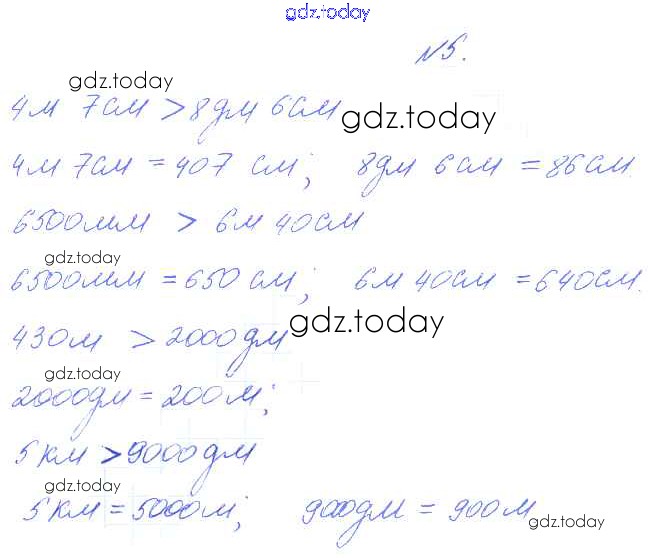 gdz.today
№5.
gdz.today
4м 7см > 8дм 6см
gdz.today
4м 7см = 407 см; 8дм 6см = 86см.
6500мм > 6м 40см
gdz.today
6500мм = 650 см; 6м 40см = 640см.
430м > 2000дм
gdz.today
gdz.today
2000дм = 200м;
5 км > 9000дм
gdz.today
5 км = 5000м; 9000дм = 900м
gdz.today